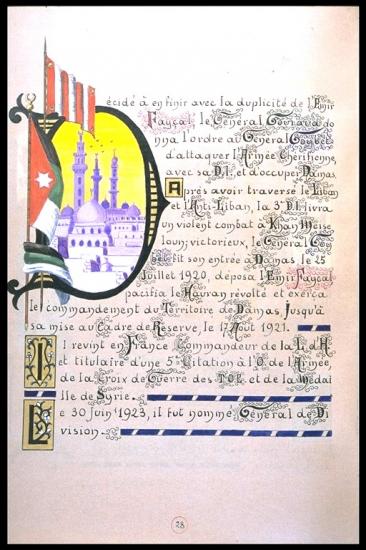 Décidé à en finir avec la duplicité de l'Emir
Fayçal, le Général Gouraud do
nna l'ordre au Général Goybet
d'attaquer l'Armée Chérifienne,
avec sa D.I. et d'occuper Damas.
Après avoir traversé le Liban
et l'Anti-Liban, la 3e D.I. livra
un violent combat à Khan Meise
loun; victorieux, le Général Goy
bet fit son entrée à Damas, le 25
Juillet 1920, déposa l'Emir Fayçal
pacifia le Hauran révolté et exerça
le commandement du Territoire de Damas, Jusqu'à
sa mise au Cadre de Réserve, le 17 Août 1921.
Il revint en France Commandeur de la L. d'H
et titulaire d'une 5me Citation à l'O. de l'Armée,
de la Croix de Guerre des T.O.E. et de la Médai
lle de Syrie.
Le 30 Juin 1923, il fut nommé Général de Di
vision.
28